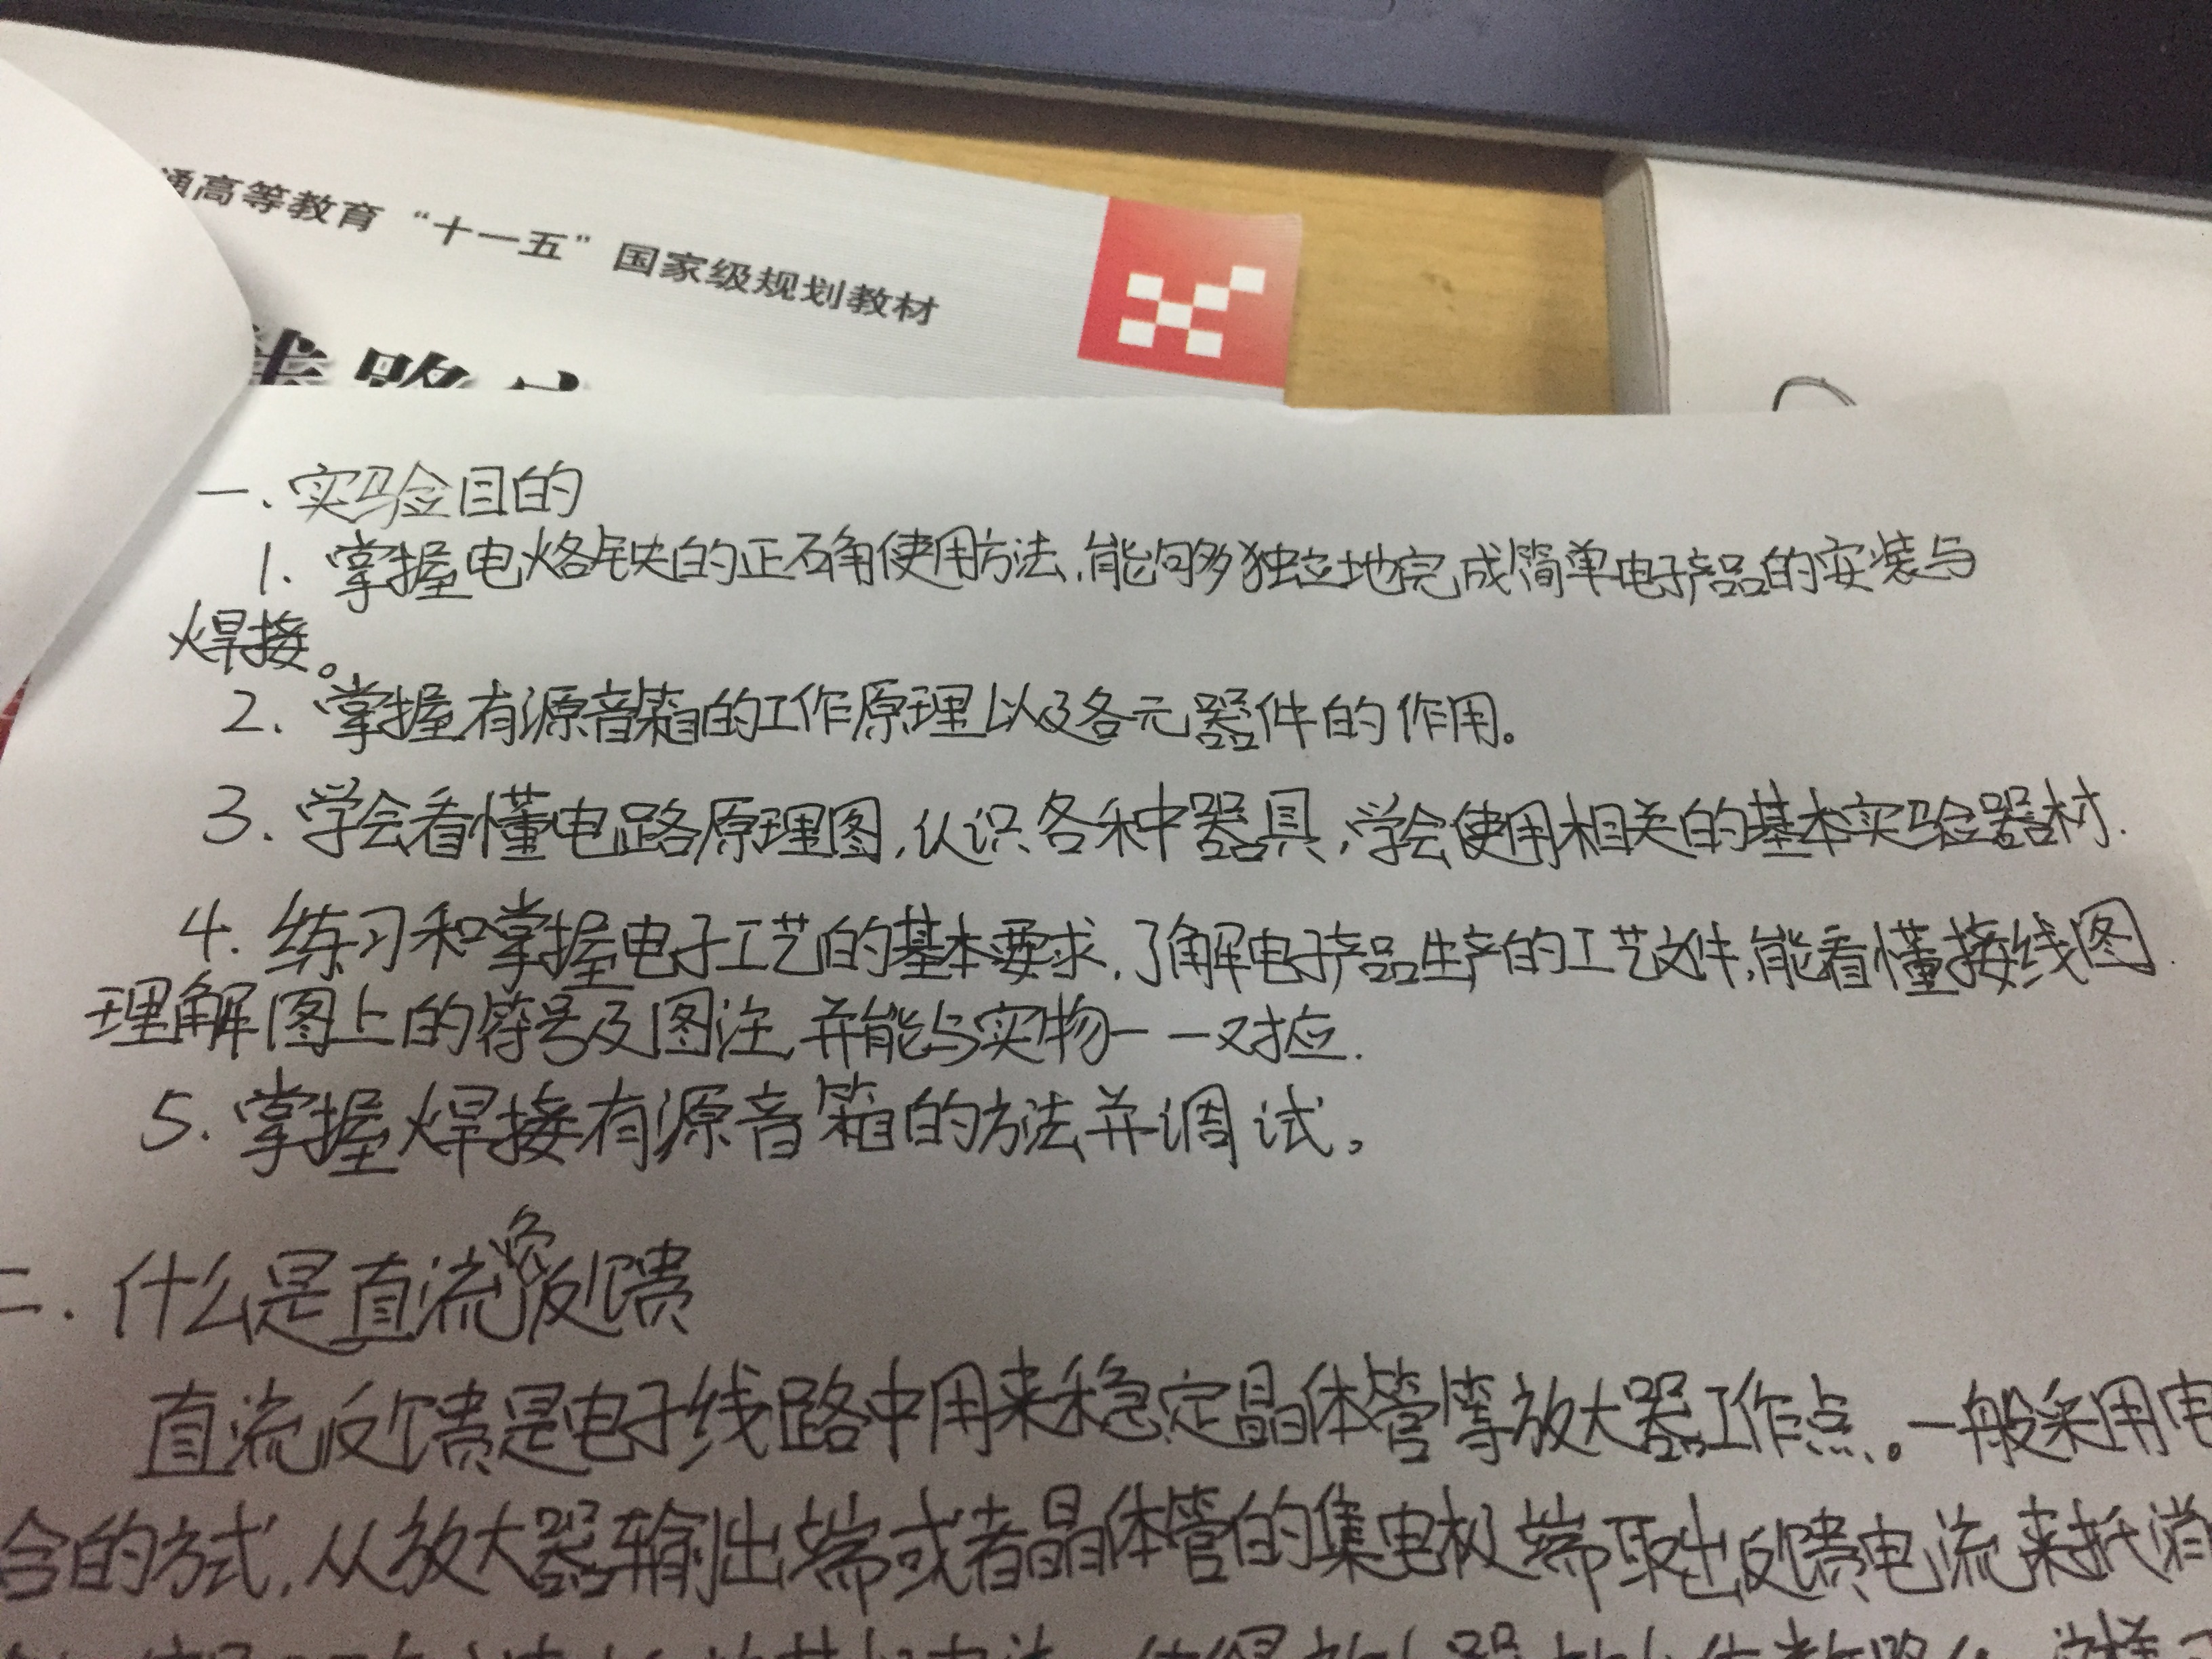 通高等教育“十一五”国家级规划教材
路
一.实验目的
1.掌握电烙铁的正确使用方法,能够独立地完成简单电子产品的安装与
焊接。
2.掌握有源音箱的工作原理以及各元器件的作用。
3.学会看懂电路原理图,认识各种器具,学会使用相关的基本实验器材.
4.练习和掌握电子工艺的基本要求,了解电子产品生产的工艺文件,能看懂接线图.
理解图上的符号及图注,并能与实物一一对应.
5.掌握焊接有源音箱的方法并调试。
二.什么是直流反馈
直流反馈是电子线路中用来稳定晶体管等放大器工作点。一般采用电
含的方式,从放大器输出端或者晶体管的集电极端取出反馈电流来抵消